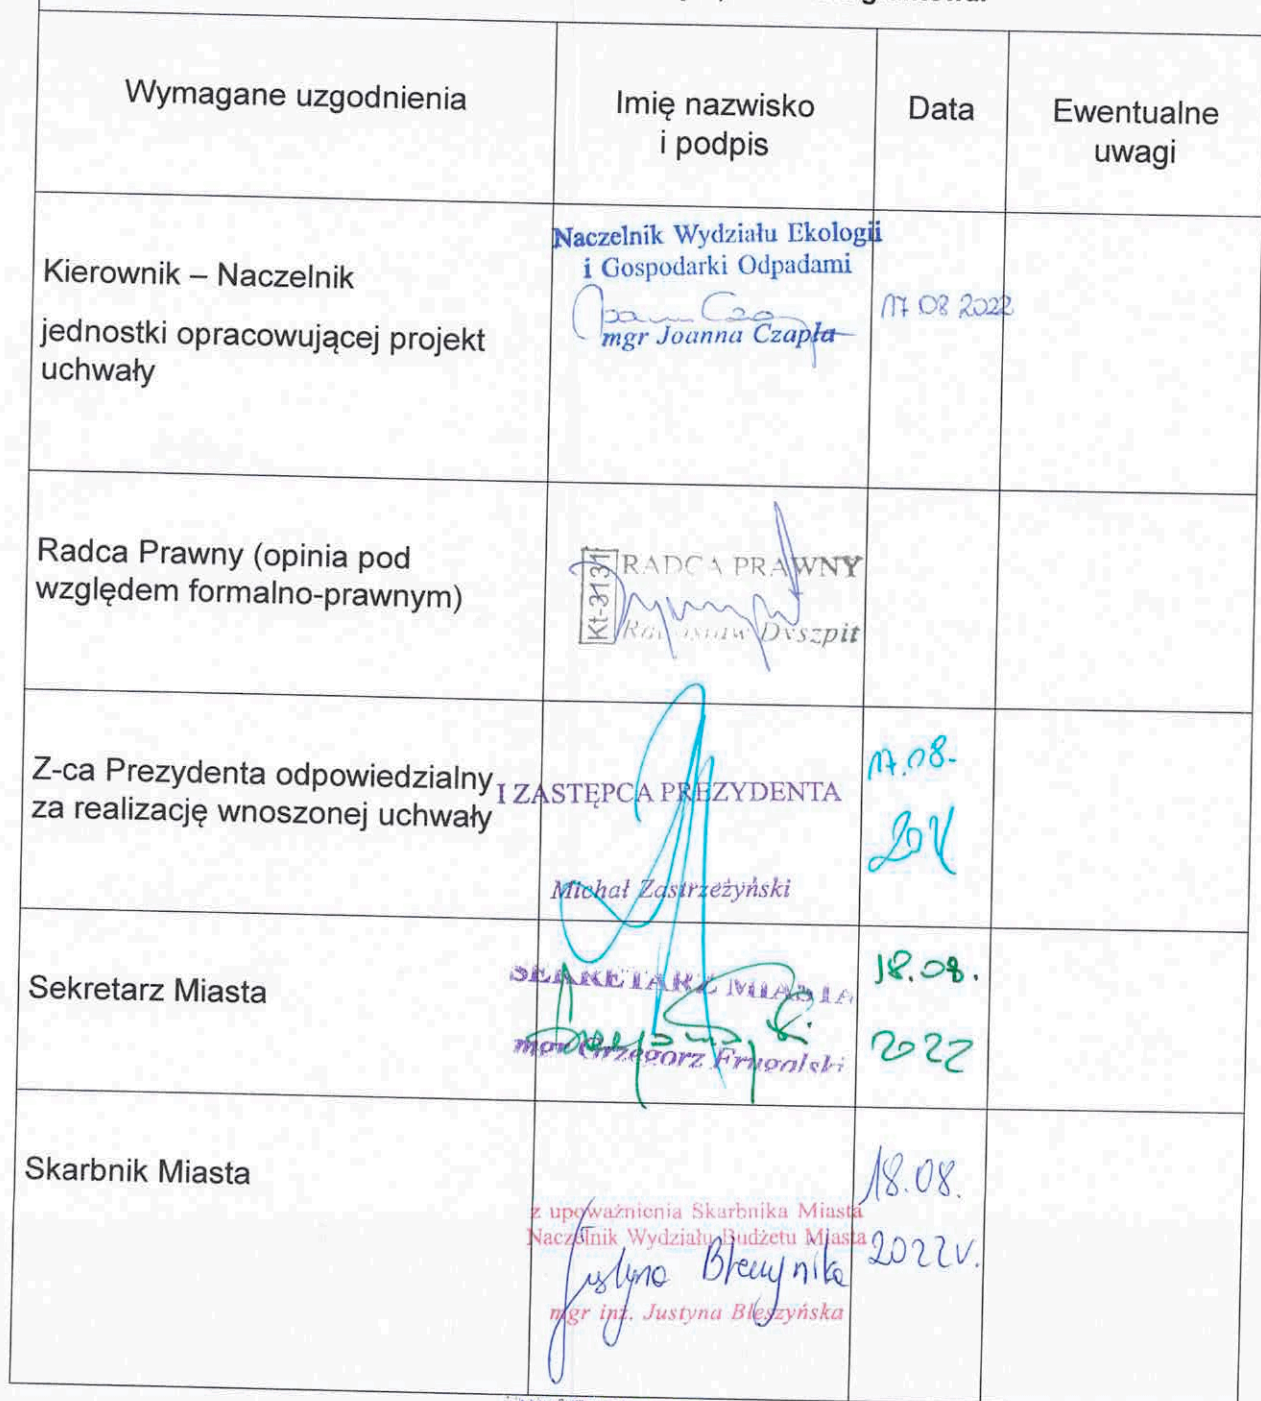 Wymagane uzgodnienia
Imię nazwisko
i podpis
Data
Ewentualne
uwagi
Kierownik – Naczelnik
jednostki opracowującej projekt
uchwały
Naczelnik Wydziału Ekologii
i Gospodarki Odpadami
mgr Joanna Czapla
17 08 2022
Radca Prawny (opinia pod
względem formalno-prawnym)
Kt-3131
RADCA PRAWNY
Radosław Dyszpit
Z-ca Prezydenta odpowiedzialny
za realizację wnoszonej uchwały
I ZASTĘPCA PREZYDENTA
Michał Zastrzeżyński
17.08.
Sekretarz Miasta
SEKRETARZ MIASTA
mgr Grzegorz Frugalski
18.08.
2022
Skarbnik Miasta
z upoważnienia Skarbnika Miasta
Naczelnik Wydziału Budżetu Miasta
Justyna Błeszyńska
mgr inż. Justyna Błeszyńska
18.08.
2022r.